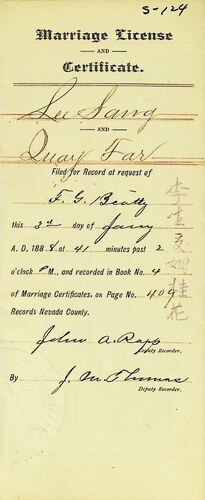 S-124
Marriage License
AND
Certificate.
Lee Sang
AND
Quay Far
Filed for Record at request of
F. G. Beatty
this 3rd day of Jany
A. D. 1888 at 41 minutes past 2
o'clock P M., and recorded in Book No. 4
of Marriage Certificates, on Page No. 409
Records Nevada County.
John A. Rapp
Deputy Recorder.
By J. M. Thomas
Deputy Recorder.
李生娶 桂花